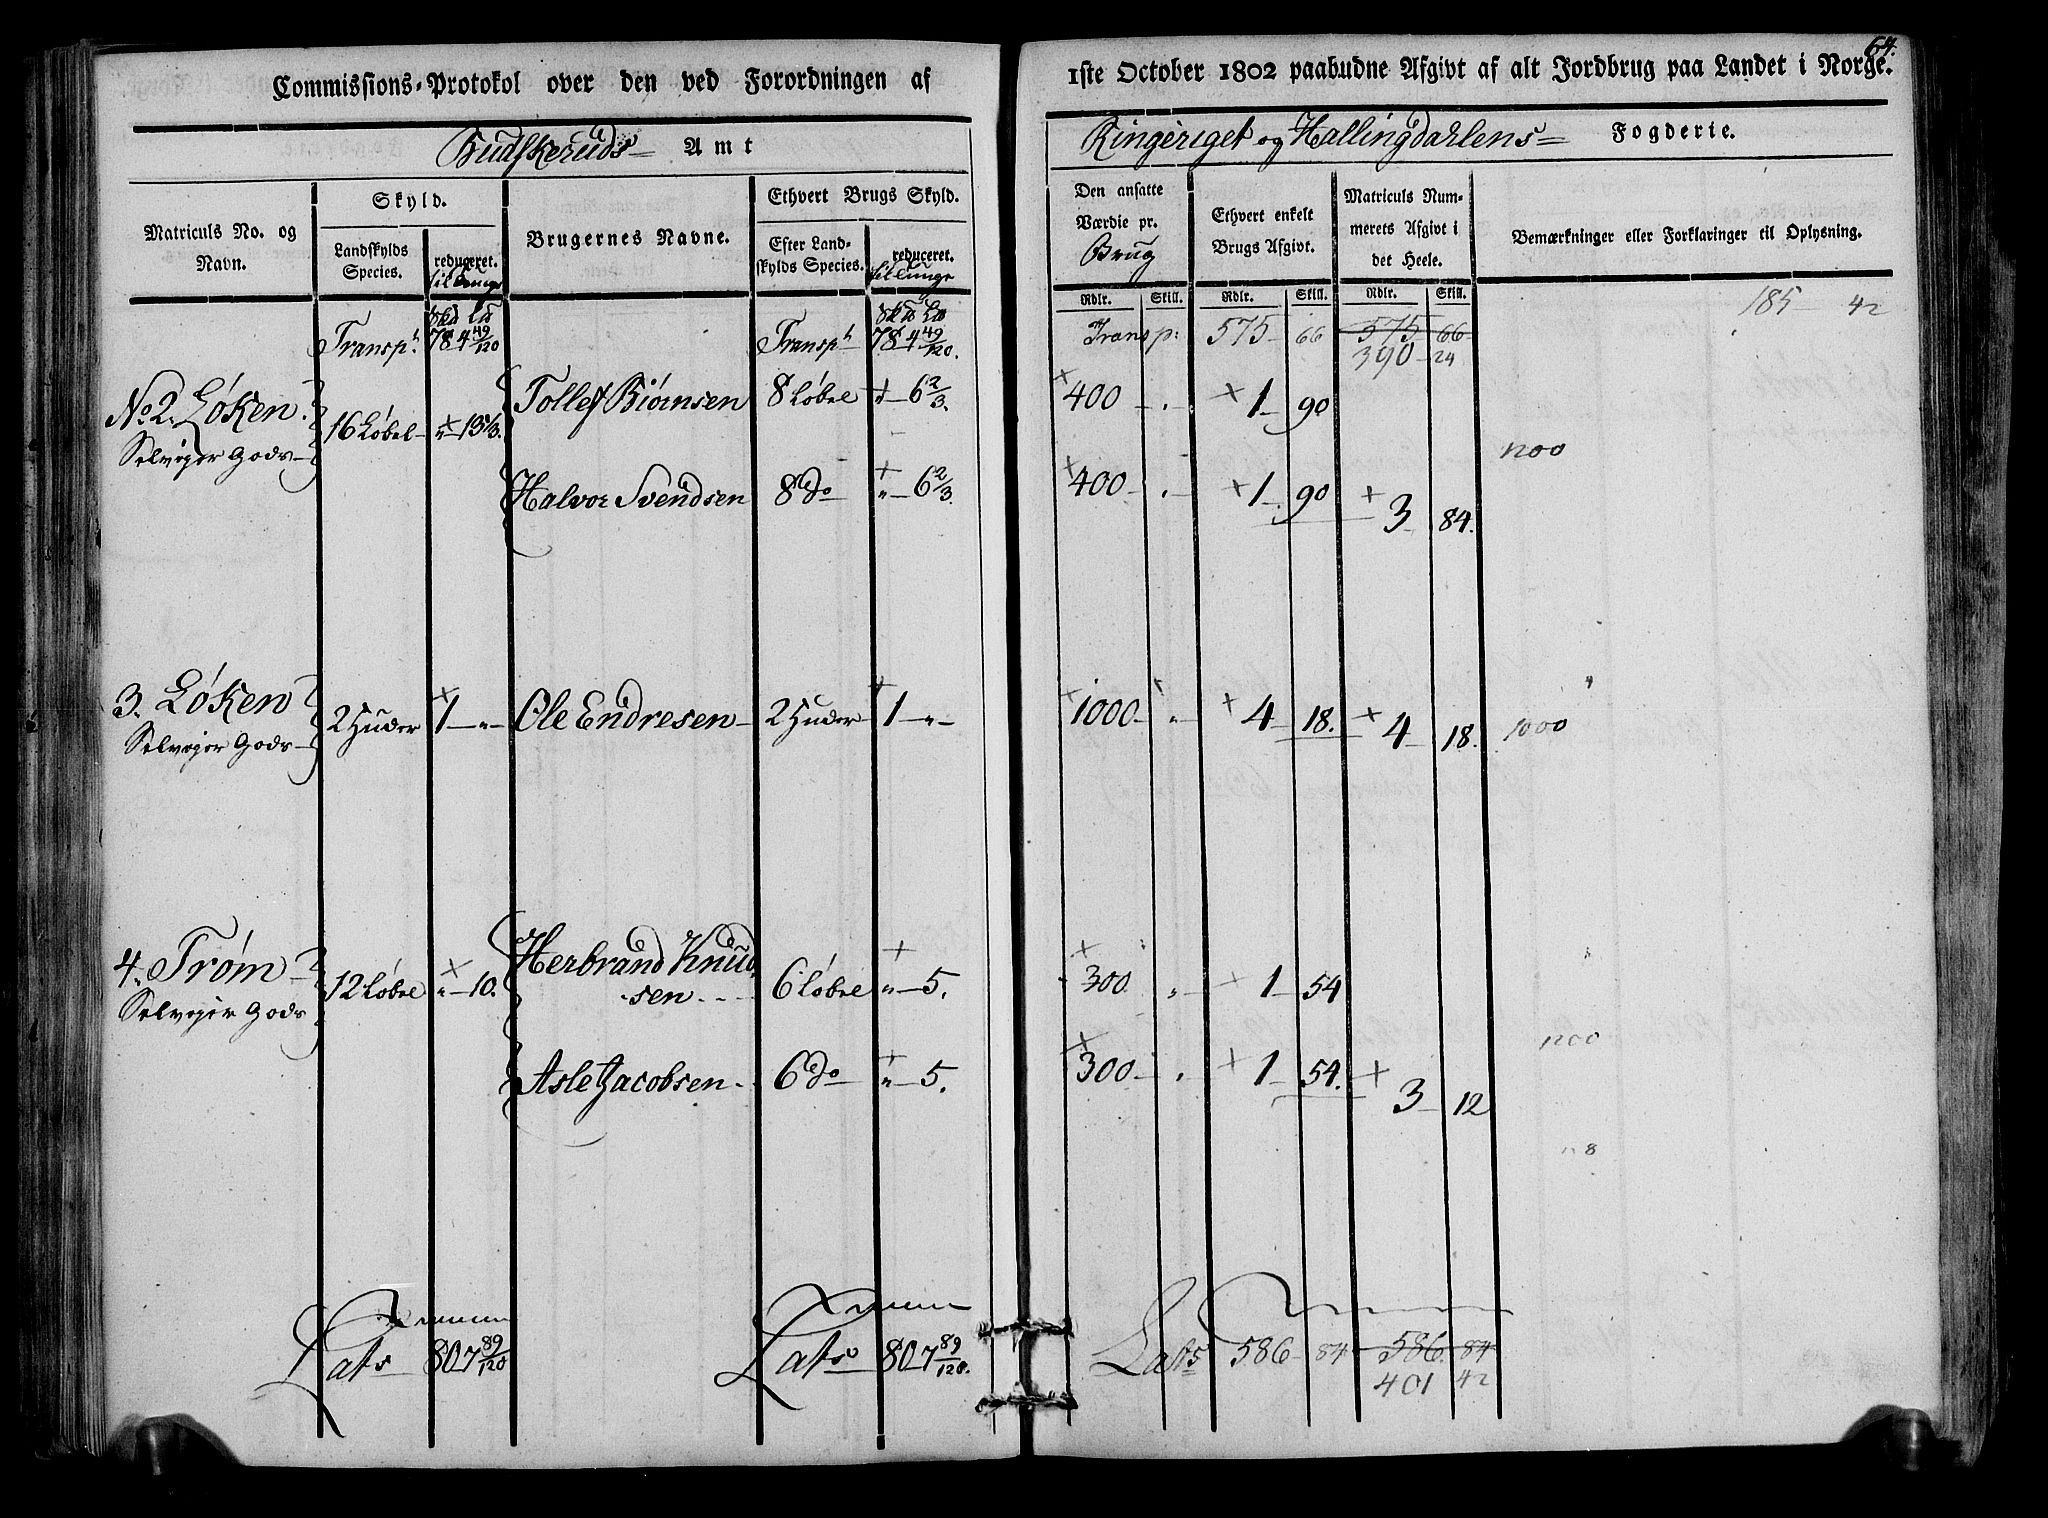 64.
Commissions-Protokol over den ved Forordningen af 1ste October 1802 paabudne Afgivt af alt Jordbrug paa Landet i Norge.
Budskeruds Amt
Ringeriget og Hallingdahlens Fogderie.
Matriculs No. og Navn.
Skyld.
Landskylds Species.
reduceret.
til Tunge
Brugernes Navne.
Ethvert Brugs Skyld.
Efter Landskylds Species.
reduceret.
til Tunge
Den ansatte Værdie pr. Brug
Ethvert enkelt Brugs Afgivt.
Matriculs Nummerets Afgivt i det Heele.
Bemærkninger eller Forklaringer til Oplysning.
Rdlr. Skill. Rdlr. Skill. Rdlr. Skill.
185 42
Transpt 78 4 49/120 Transpt 78 4 49/120. Transp: 575 66 575 66
390 24
No 2. Løken 16 Løbel " 13 1/3. Tollef Biørnsen 8 Løbel " 6 2/3. 400 . 1 90
Selveyer Gods
Halvor Svendsen 8 do " 6 2/3. 400 . 1 90 3 84.
3. Løken 2 Huder 1 " Ole Endresen 2 Huder 1 " 1000 " 4 18. 4 18. 1000
Selveyer Gods
4. Trøm 12 Løbel " 10. Herbrand Knudsen 6 Løbel " 5. 300 " 1 54
Selveyer Gods
Asle Jacobsen 6 do " 5. 300 . 1 54. 3 12
Lats 80 7 89/120 Lats 80 7 89/120. Lats 586 84 586 84
401 42